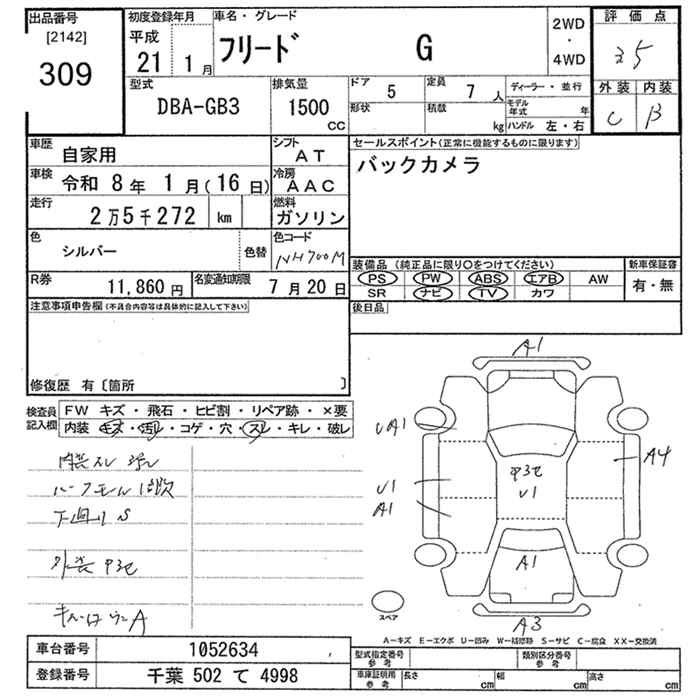 出品番号
[2142]
309
初度登録年月
平成
21 1月
車名・グレード
フリード G
2WD
・
4WD
評価点
35
外装 内装
C B
型式
DBA-GB3
排気量
1500
CC
ドア 5
定員 7人
形状
積載 kg
ディーラー・並行
モデル年式 年
ハンドル 左・右
車歴 自家用
シフト AT
車検 令和 8年 1月(16日)
冷房 AAC
走行 2万5千272 km
燃料 ガソリン
色 シルバー 色替
色コード NH700M
R券 11,860円
名変通知期限 7月20日
セールスポイント(正常に機能するものに限ります)
バックカメラ
装備品(純正品に限り○をつけてください)
PS PW ABS エアB AW
SR ナビ TV カワ
新車保証書
有・無
後日品
注意事項申告欄(不具合内容等は具体的に記入して下さい)
修復歴 有〔箇所 〕
検査員記入欄
FW キズ・飛石・ヒビ割・リペア跡・×要
内装 キズ・汚レ・コゲ・穴・スレ・キレ・破レ
下廻りS
A1
UA1
U1
A1
U1
A4
A1
A3
スペア
A−キズ E−エクボ U−凹み W−補修跡 S−サビ C−腐食 XX−交換済
車台番号 1052634
登録番号 千葉 502 て 4998
型式指定番号 参考
類別区分番号 参考
車庫証明用 参考
長さ cm
幅 cm
高さ cm